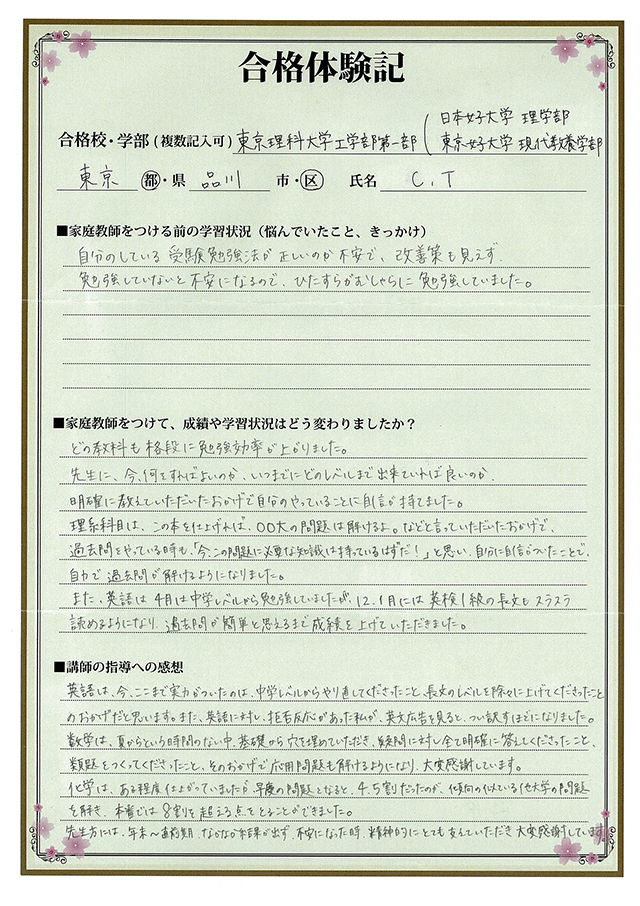 合格体験記
合格校・学部(複数記入可) 東京理科大学工学部第一部 ( 日本女子大学 理学部
東京女子大学 現代教養学部
東京 都・県 品川 市・区 氏名 C.T
■家庭教師をつける前の学習状況(悩んでいたこと、きっかけ)
自分のしている受験勉強法が正しいのか不安で、改善策も見えず
勉強していないと不安になるので、ひたすらがむしゃらに勉強していました。
■家庭教師をつけて、成績や学習状況はどう変わりましたか?
どの教科も格段に勉強効率が上がりました。
先生に、今、何をすればよいのか、いつまでにどのレベルまで出来ていれば良いのか
明確に教えていただいたおかげで自分のやっていることに自信が持てました。
理系科目は、この本を仕上げれば、〇〇大の問題は解けるよ。などと言っていただいたおかげで、
過去問をやっている時も、「今、この問題に必要な知識は持っているはずだ!」と思い、自分に自信がついたことで、
自力で過去問が解けるようになりました。
また、英語は4月は中学レベルから勉強していましたが、12、1月には英検1級の長文もスラスラ
読めるようになり、過去問が簡単と思えるまで成績を上げていただきました。
■講師の指導への感想
英語は、今、ここまで実力がついたのは、中学レベルからやり直してくださったこと、長文のレベルを除々に上げてくださったこと
のおかげだと思います。また、英語に対し、拒否反応があった私が、英文広告を見ると、つい訳すほどになりました。
数学は、夏からという時間のない中、基礎から穴を埋めていただき、疑問に対し全て明確に答えてくださったこと、
類題をつくってくださったこと、そのおかげで応用問題も解けるようになり、大変感謝しています。
化学は、ある程度仕上がっていましたが、早慶の問題となると、4、5割だったのが、傾向の似ている他大学の問題
を解き、本番では8割を超える点をとることができました。
先生方には、年末〜直前期、なかなか結果が出ず、不安になった時、精神的にとても支えていただき大変感謝しています